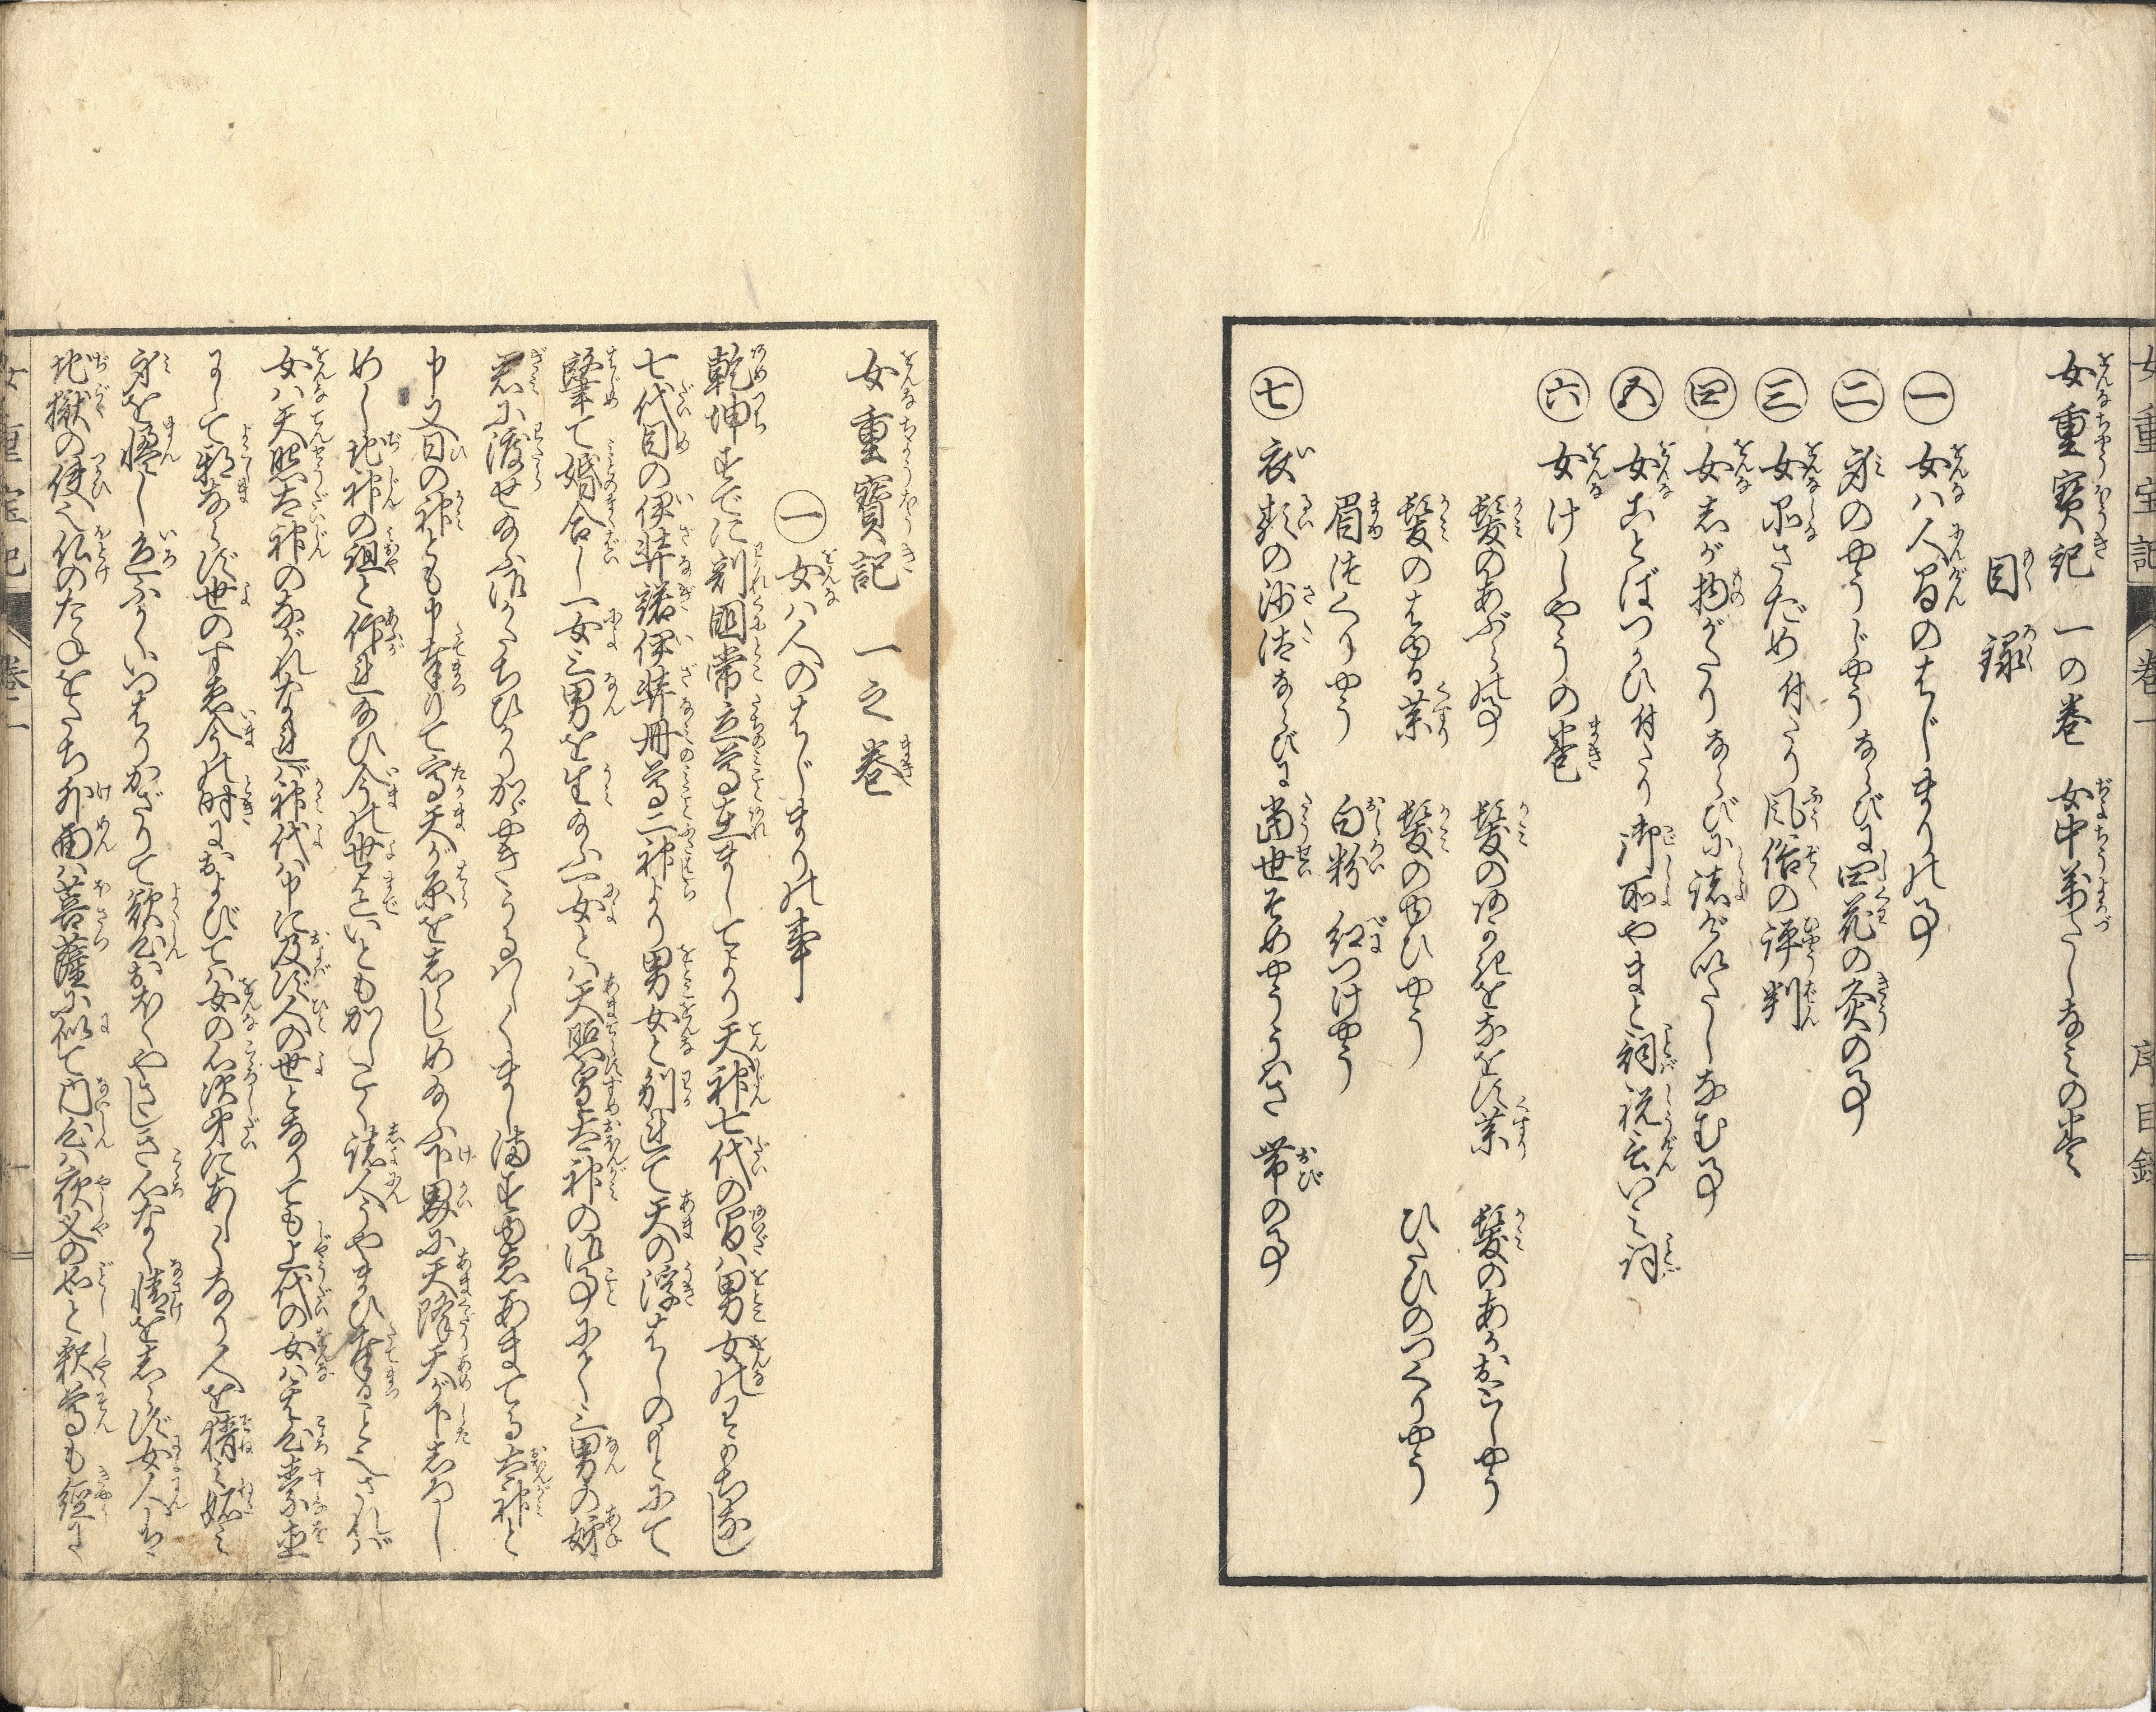 女重寳記 一の巻 女中萬たしなみの巻
目録
一 女ハ人間のはじまりの事
二 身のやうじやうならびに四花の灸の事
三 女品さだめ付たり風俗の評判
四 女しが物がたりならびに諸芸いたしなむ事
五 女ことばつかひ付たり御所やまと詞 祝言いミ詞
六 女けしやうの巻
髪のあぶらの事 髪の をなをす薬 髪のあかおとしやう
髪のはゆる薬 髪のゆひやう ひたひのつくりやう
眉つくりやう 白粉 紅つけやう
七 衣類の沙汰ならびに當世そめやう 帯の事
女重宝記 巻一 序目録
女重寳記 一之巻
一 女ハ人のはじまりの事
乾坤すでに割國常立尊在ましてより天神七代の間ハ男女のわかちなし
七代目の伊弉諾伊弉冊尊二神より男女と別れて天の浮はしのもとにて
肇て婚合し一女三男を生給ふ一女とハ天照皇太神の御事にして三男の姉
君に渡せ給ふ御かたちひかりかゞやきうるハしくまし満すゆゑあまてる太神と
申又日の神とも申奉りて高天が原をしらしめ給ふ下界に天降天が下しろし
めし地神の祖と仰れ給ひ今の世までいともかしこく諸人うやまひ奉ることへされバ
女ハ天照太神のながれなれバ神代ハ申に及ず人の世となりても上代の女ハ其心素直
にして邪ならず世のすゑ今の時におよびてハ女の心次第にあしくなり人を猜ミ妬ミ
身を慢し色ふかくいつはりかざりて欲心おほくやさしき心なく情をしらず女人は
地獄の使也仏のたねをたち外面ハ菩薩に似て内心ハ夜叉のごとしと釈尊も經に
女重宝記 巻一 一